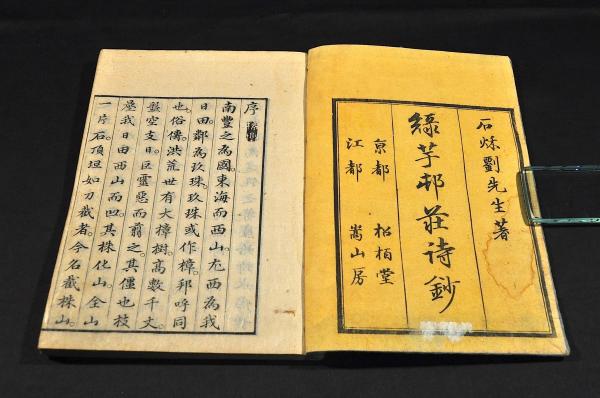 石秌劉先生著
綠芋邨莊詩鈔
亰都　松栢堂
江都　嵩山房
序
南豐之為國。東海而西山。尤西為我
日田。鄰為玖珠。玖珠或作樟。邦呼同
也。俗傳。洪荒世有大樟樹。高數千丈。
盤空支日。巨靈惡而翦之。其僵也枝
壓我日田西山而凹。其株化山。全山
一片石。頂垣如刀截者。今名截株山。